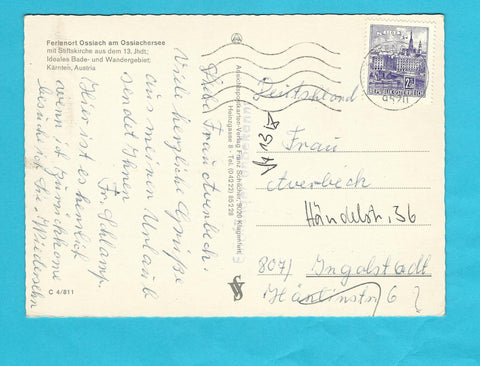 Ferienort Ossiach am Ossiachersee
mit Stiftskirche aus dem 13. Jhdt;
Ideales Bade- und Wandergebiet;
Kärnten, Austria
Liebe Frau Averbeck.
Viele herzliche Grüße
aus meinem Urlaub
sendet Ihnen
Fr. Schlamp
Hier ist es herrlich
wenn ich zurückkome
besuche ich Sie. Wiedersehn
C 4/811
Ansichtspostkarten-Verlag Franz Schilcher, 9020 Klagenfurt
Heinzgasse 8 - Tel. (04222) 85228
REPUBLIK ÖSTERREICH
Deutschland
Frau
Averbeck
Händelstr. 36
8071 Ingolstadt
6